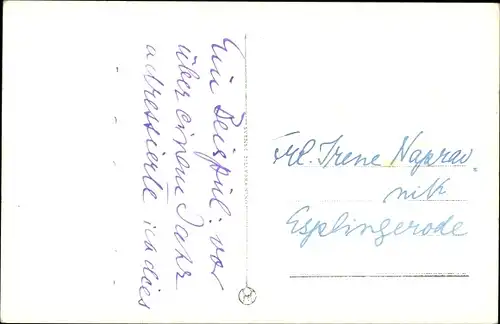 Ein Beispiel: vor
über einem Jahr
adressierte ich dies
Frl. Irene Naprav-
nik
Esplingerode